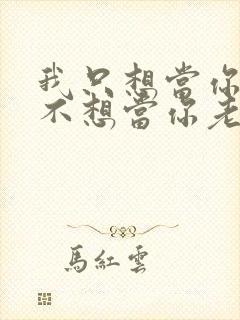 我只想當你
不想當你老
馬紅雲